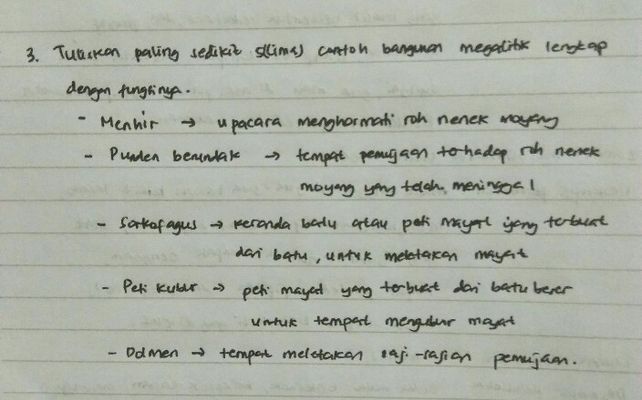 3. Tuliskan paling sedikit 5(lima) contoh bangunan megalitik lengkap
dengan fungsinya.
- Menhir → upacara menghormati roh nenek moyang
- Punden berundak → tempat pemujaan terhadap roh nenek
moyang yang telah meninggal
- Sarkofagus → keranda batu atau peti mayat yang terbuat
dari batu, untuk meletakan mayat
- Peti kubur → peti mayat yang terbuat dari batu besar
untuk tempat mengubur mayat
- Dolmen → tempat meletakan saji-sajian pemujaan.